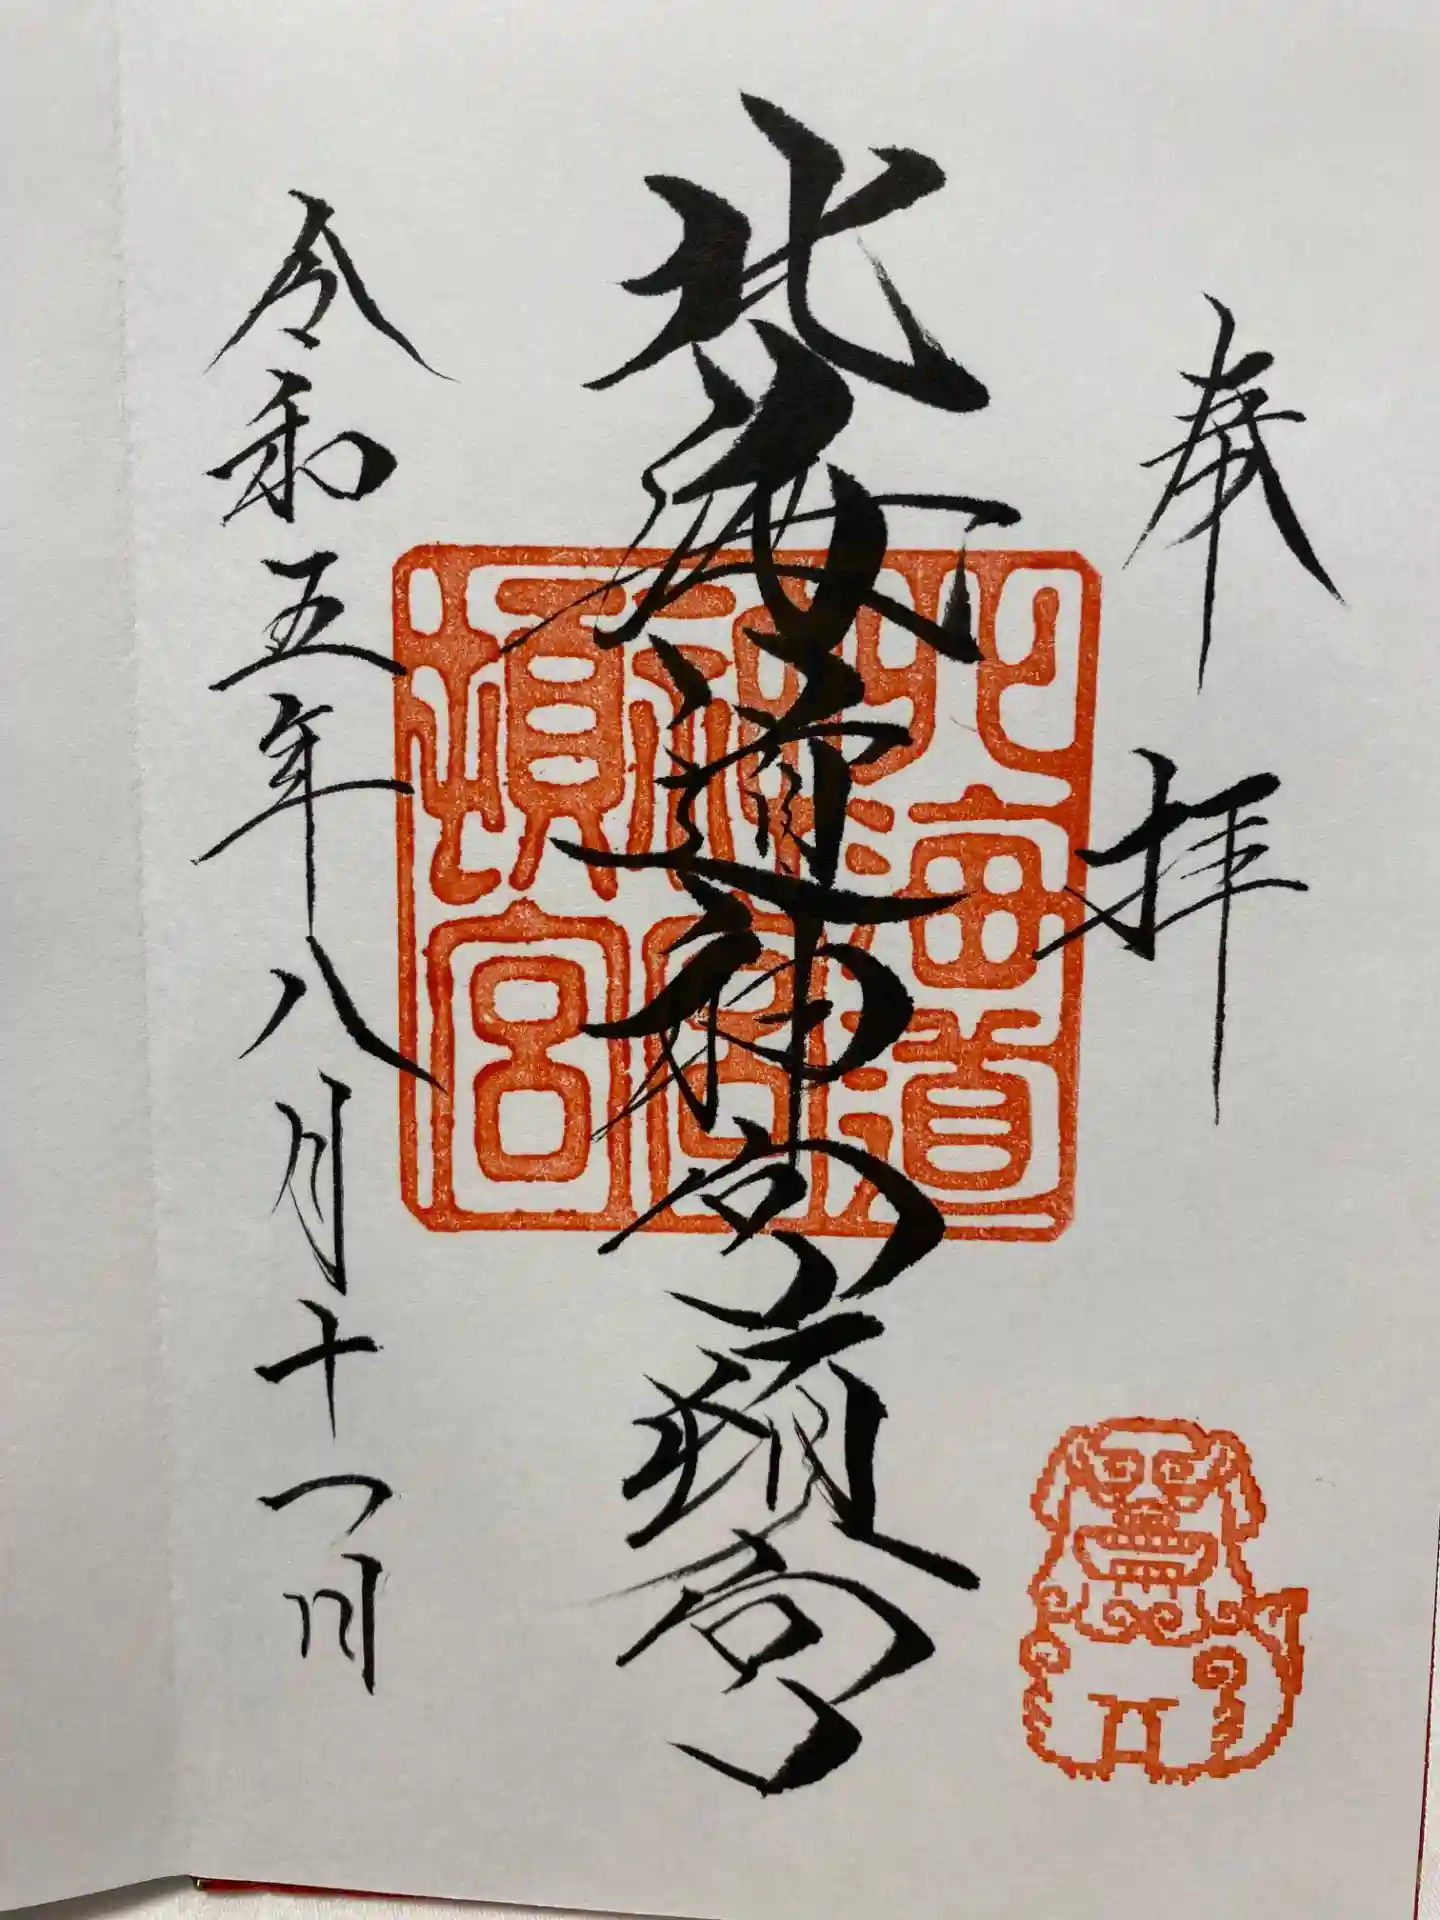 奉拝
北海道神宮頓宮
北海道
神宮
頓宮
令和五年八月十一日